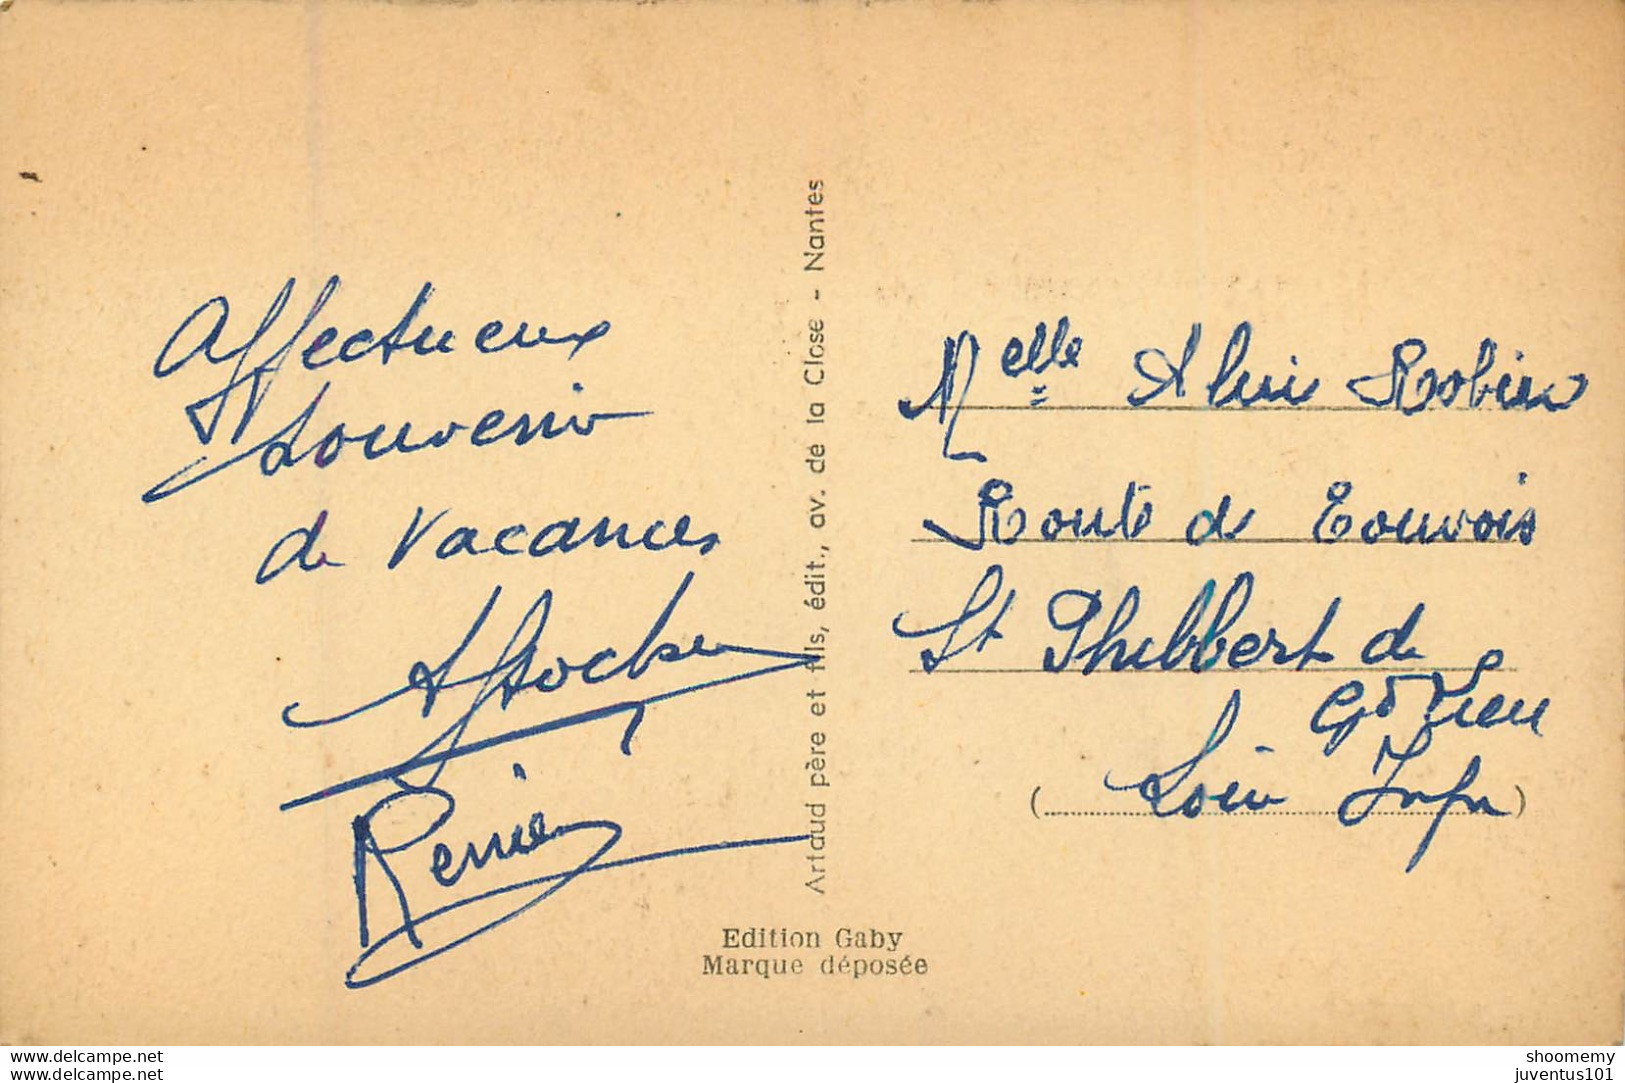 Affectueux
Souvenir
de Vacances
Renée
Artaud père et fils, édit., av. de la Close - Nantes
Edition Gaby
Marque déposée
Melle Robin
Route de Touvois
St Philbert de
Loire Infre
www.delcampe.net
www.delcampe.net
shoomemy
juventus101